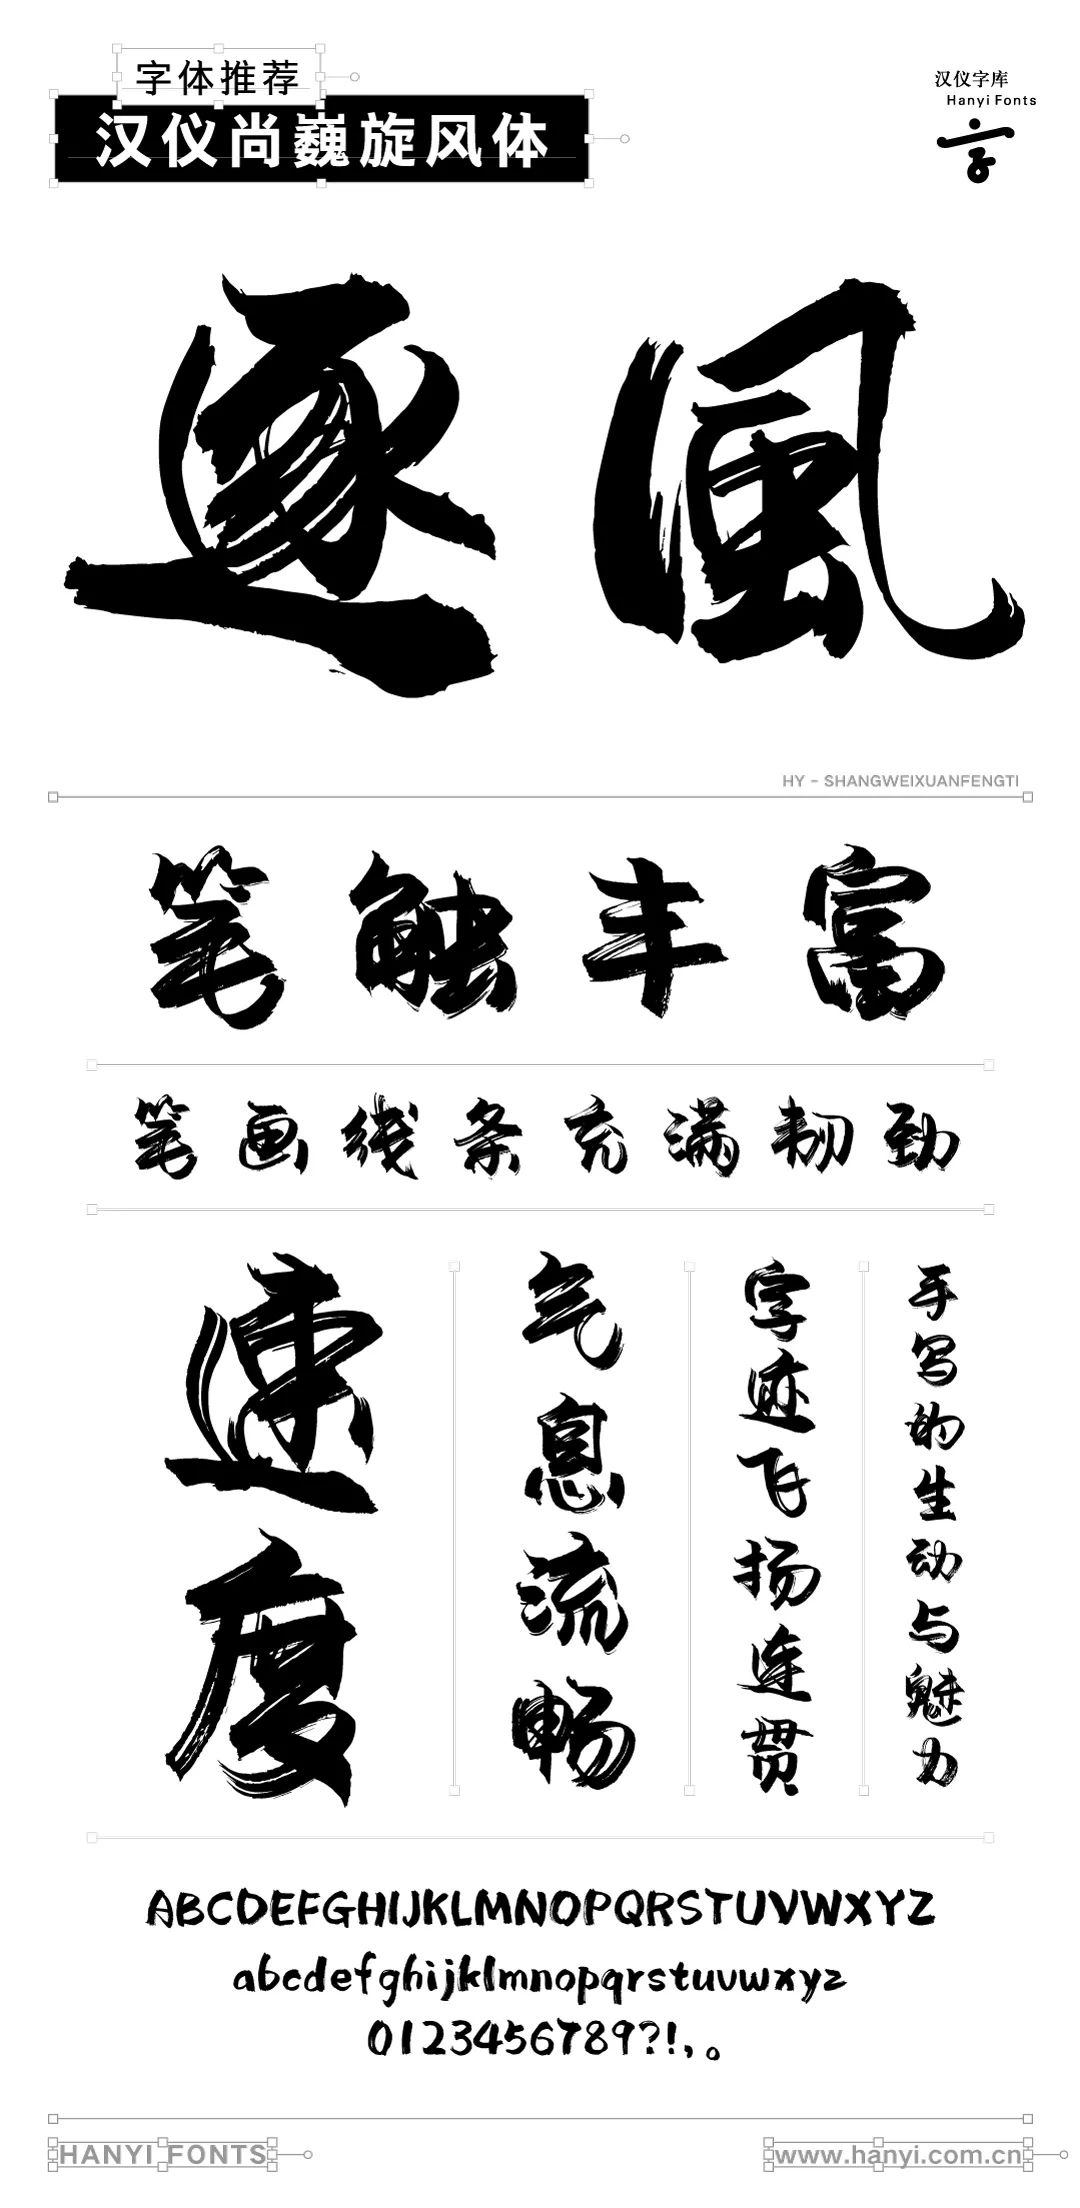 字体推荐
汉仪尚巍旋风体
汉仪字库
Hanyi Fonts
逐風
HY - SHANGWEIXUANFENGTI
笔触丰富
笔画线条充满韧劲
速度
气息流畅
字迹飞扬连贯
手写的生动与魅力
ABCDEFGHIJKLMNOPQRSTUVWXYZ
abcdefghijklmnopqrstuvwxyz
0123456789?!,。
HANYI FONTS
www.hanyi.com.cn